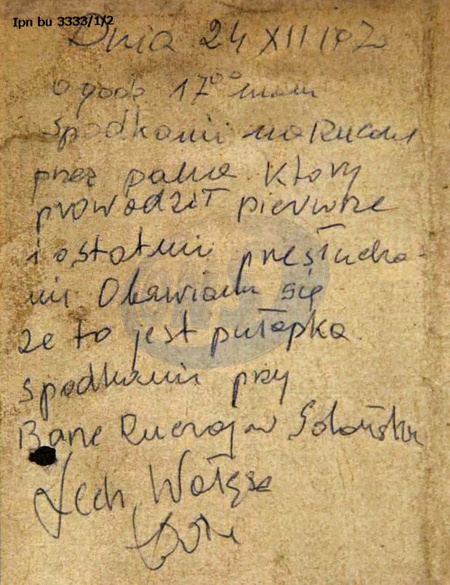 Ipn bu 3333/1/2
Dnia 24 XII
o godz 17⁰⁰ mam
spodkanie na
przez pana który
prowadził pierwsze
i ostatni przesłucha-
nie Obawiam się
że to jest pułapka.
spodkanie przy
Bane w Gdańsku
Lech Wałęsa